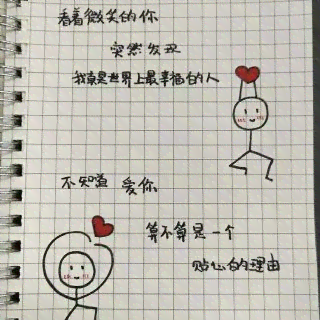 看着微笑的你
突然发现
我真是世界上最幸福的人
不知道 爱你
算不算是一个
贴心的理由